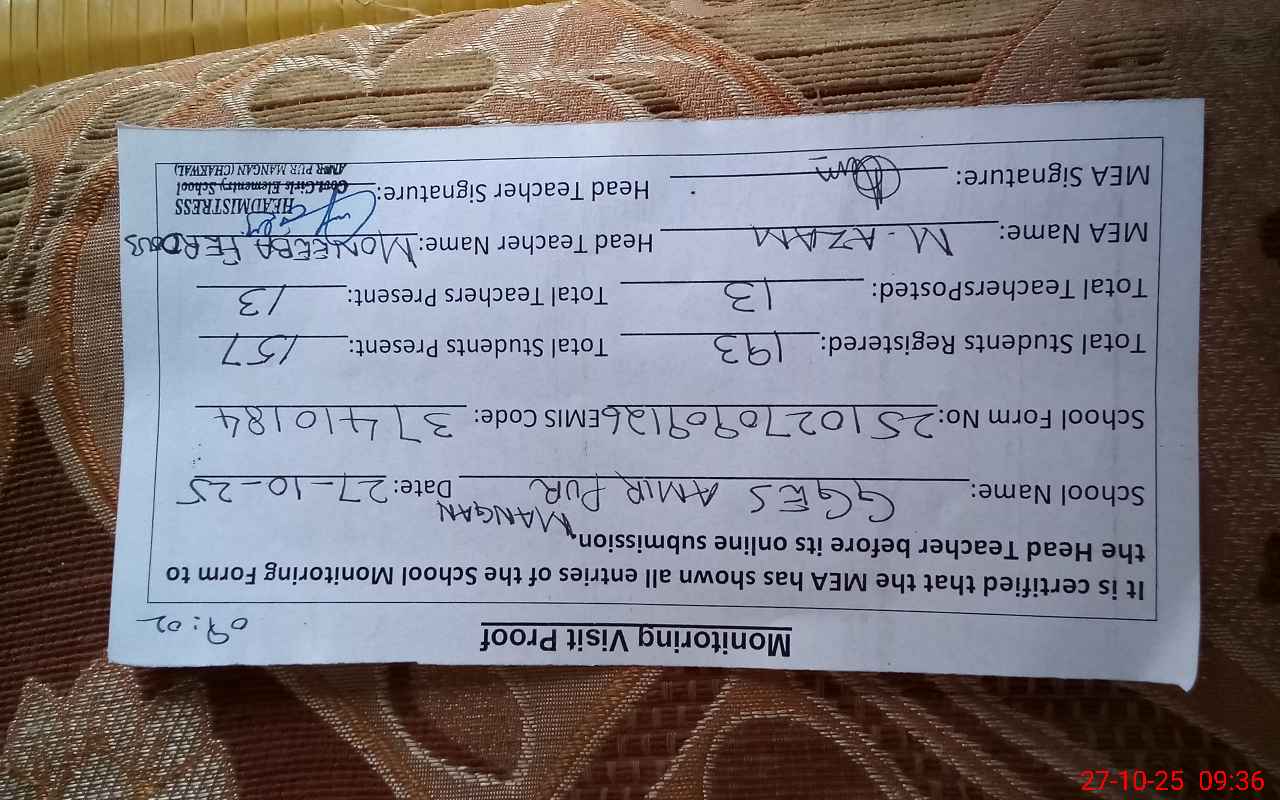 Monitoring Visit Proof
09:02
It is certified that the MEA has shown all entries of the School Monitoring Form to
the Head Teacher before its online submission.
School Name: GGES AMIR PUR MANGAN Date: 27-10-25
School Form No: 2510270909126 EMIS Code: 37410184
Total Students Registered: 193 Total Students Present: 157
Total TeachersPosted: 13 Total Teachers Present: 13
MEA Name: M. AZAM Head Teacher Name: MONEEBA FERDOUS
MEA Signature: Head Teacher Signature:
HEADMISTRESS
Govt. Girls Elementry School
AMIR PUR MANGAN (CHAKWAL)
27-10-25 09:36